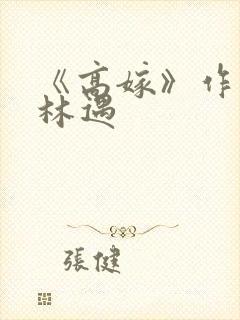 《高嫁》作
林遇
張健